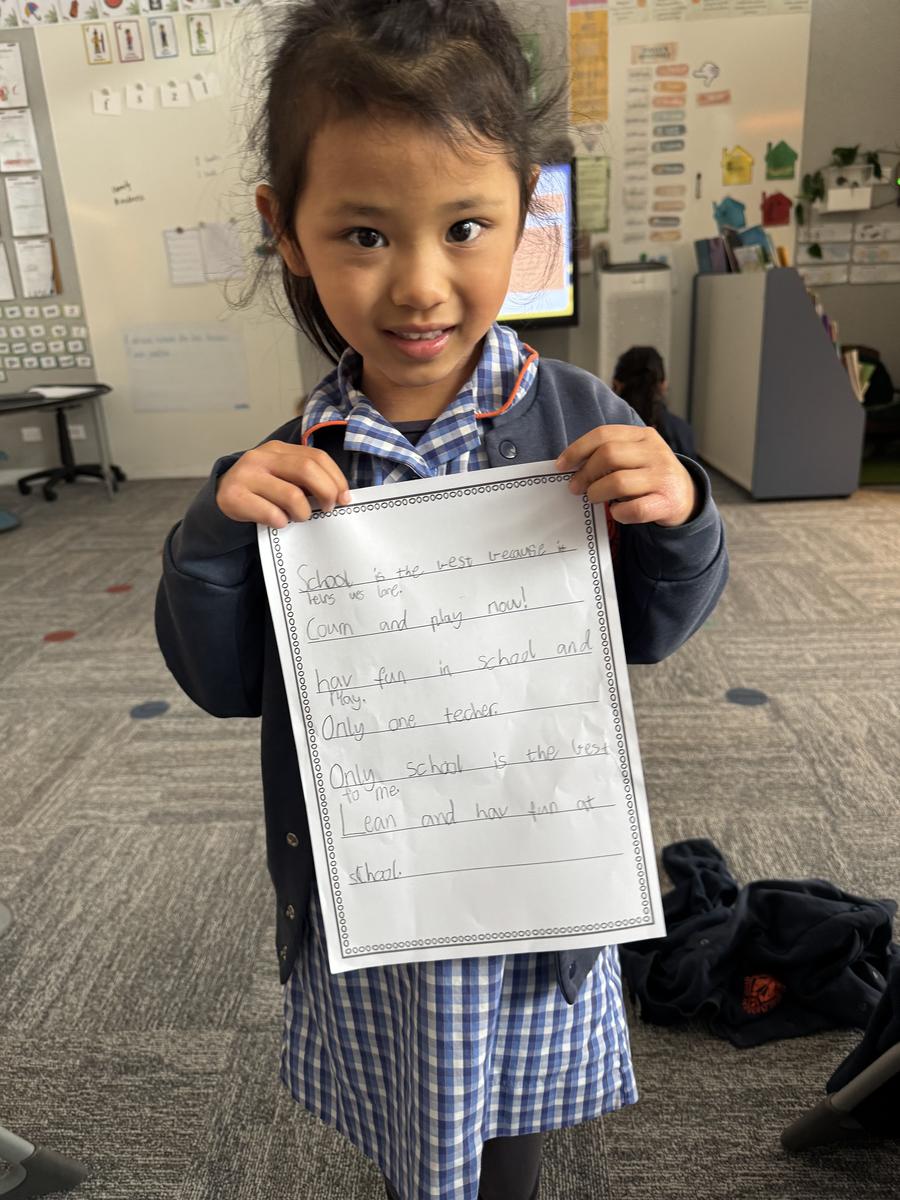 School is the best because it
helps us lare.
Coum and play now!
hav fun in school and
Play.
Only one techer.
Only school is the best
to me.
Lean and hav fun at
school.